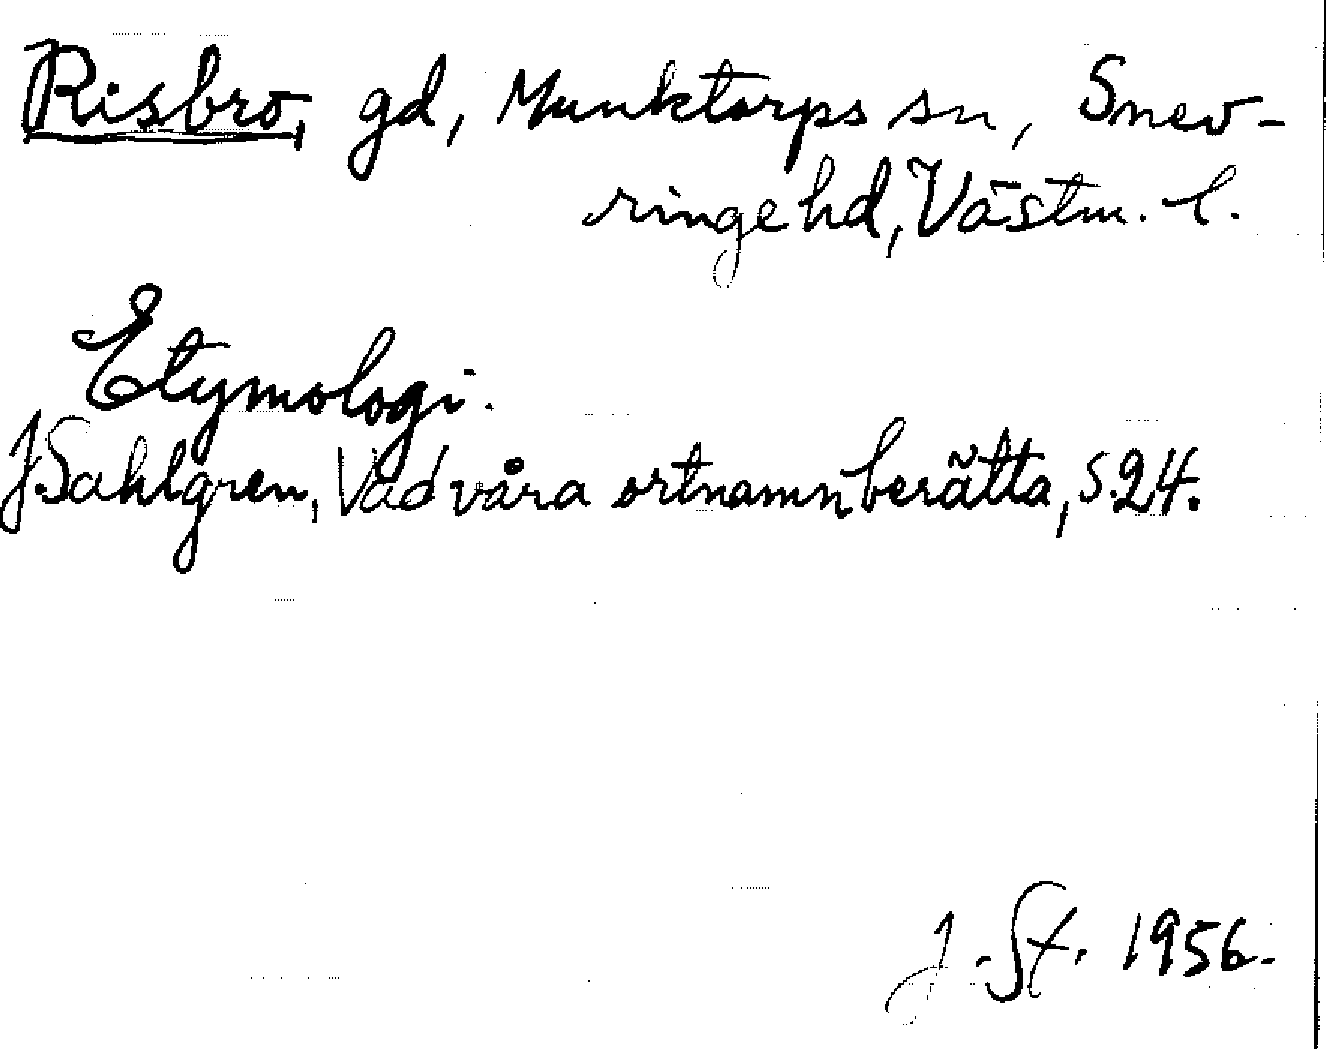 Risbro, gd, Munktorps sn, Snev-
ringe hd, Västm. l.
Etymologi.
J. Sahlgren, Vad våra ortnamn berätta, s. 24.
J. St. 1956.